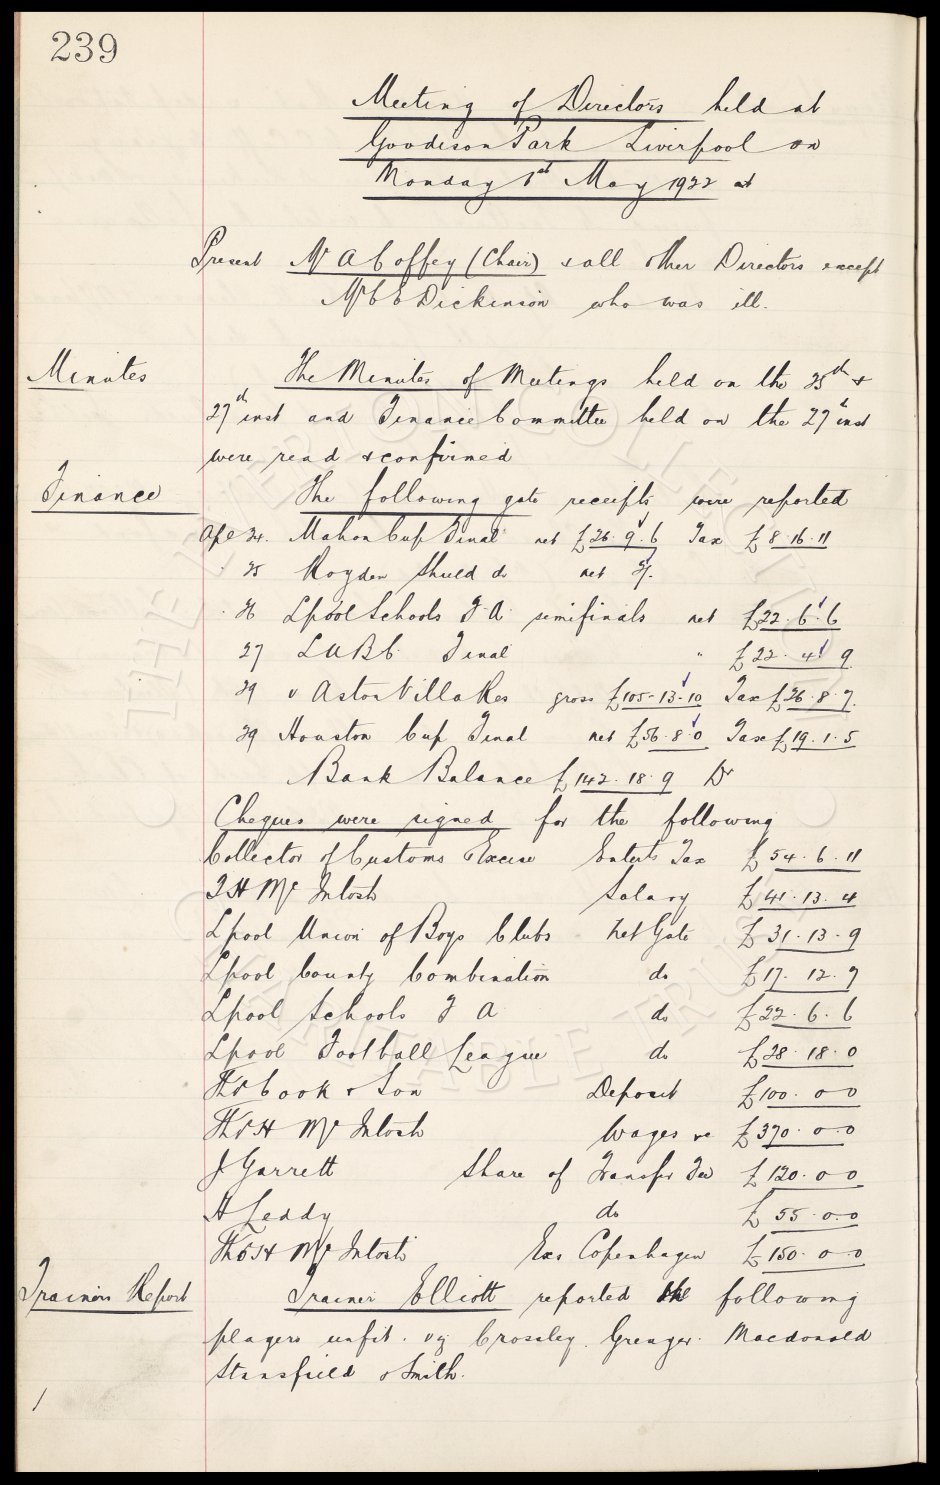 239
Meeting of Directors held at
Goodison Park Liverpool on
Monday 1st May 1922 at
Present Mr A Coffey (Chair) & all other Directors except
Mr C E Dickinson who was ill.
Minutes The Minutes of Meetings held on the 25th &
27th inst and Finance Committee held on the 27th inst
were read & confirmed
Finance The following gate receipts were reported
Apl 24. Mahon Cup Final net £26.9.6 Tax £8.16.11
" 25 Royden Shield do net
" 26 Lpool Schools F.A. semifinals net £22.6.6
27 LUBC Final " £22.4.9
29 v Aston Villa Res gross £105-13-10 Tax £26.8.7.
29 Houston Cup Final net £56.8.0 Tax £19.1.5
Bank Balance £142.18.9 Dr
Cheques were signed for the following
Collector of Customs & Excise Enterts Tax £54.6.11
T H McIntosh Salary £41.13.4
Lpool Union of Boys Clubs Net Gate £31.13.9
Lpool County Combination do £17.12.7
Lpool Schools F A do £22.6.6
Lpool Football League do £28.18.0
Thos Cook & Son Deposit £100.0.0
Thos H McIntosh Wages &c £370.0.0
J Garrett Share of Transfer Fee £120.0.0
H Leddy do £55.0.0
Thos H McIntosh Exs Copenhagen £150.0.0
Trainers Report Trainer Elliott reported the following
players unfit. viz Crossley. Grenyer. Macdonald
Stansfield & Smith.
THE EVERTON COLLECTION
CHARITABLE TRUST